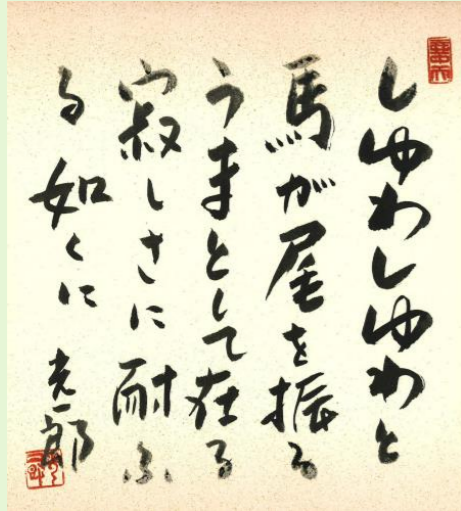 しゆわしゆわと
馬が尾を振る
うまとして在る
寂しさに耐ふ
る如くに
光一郎